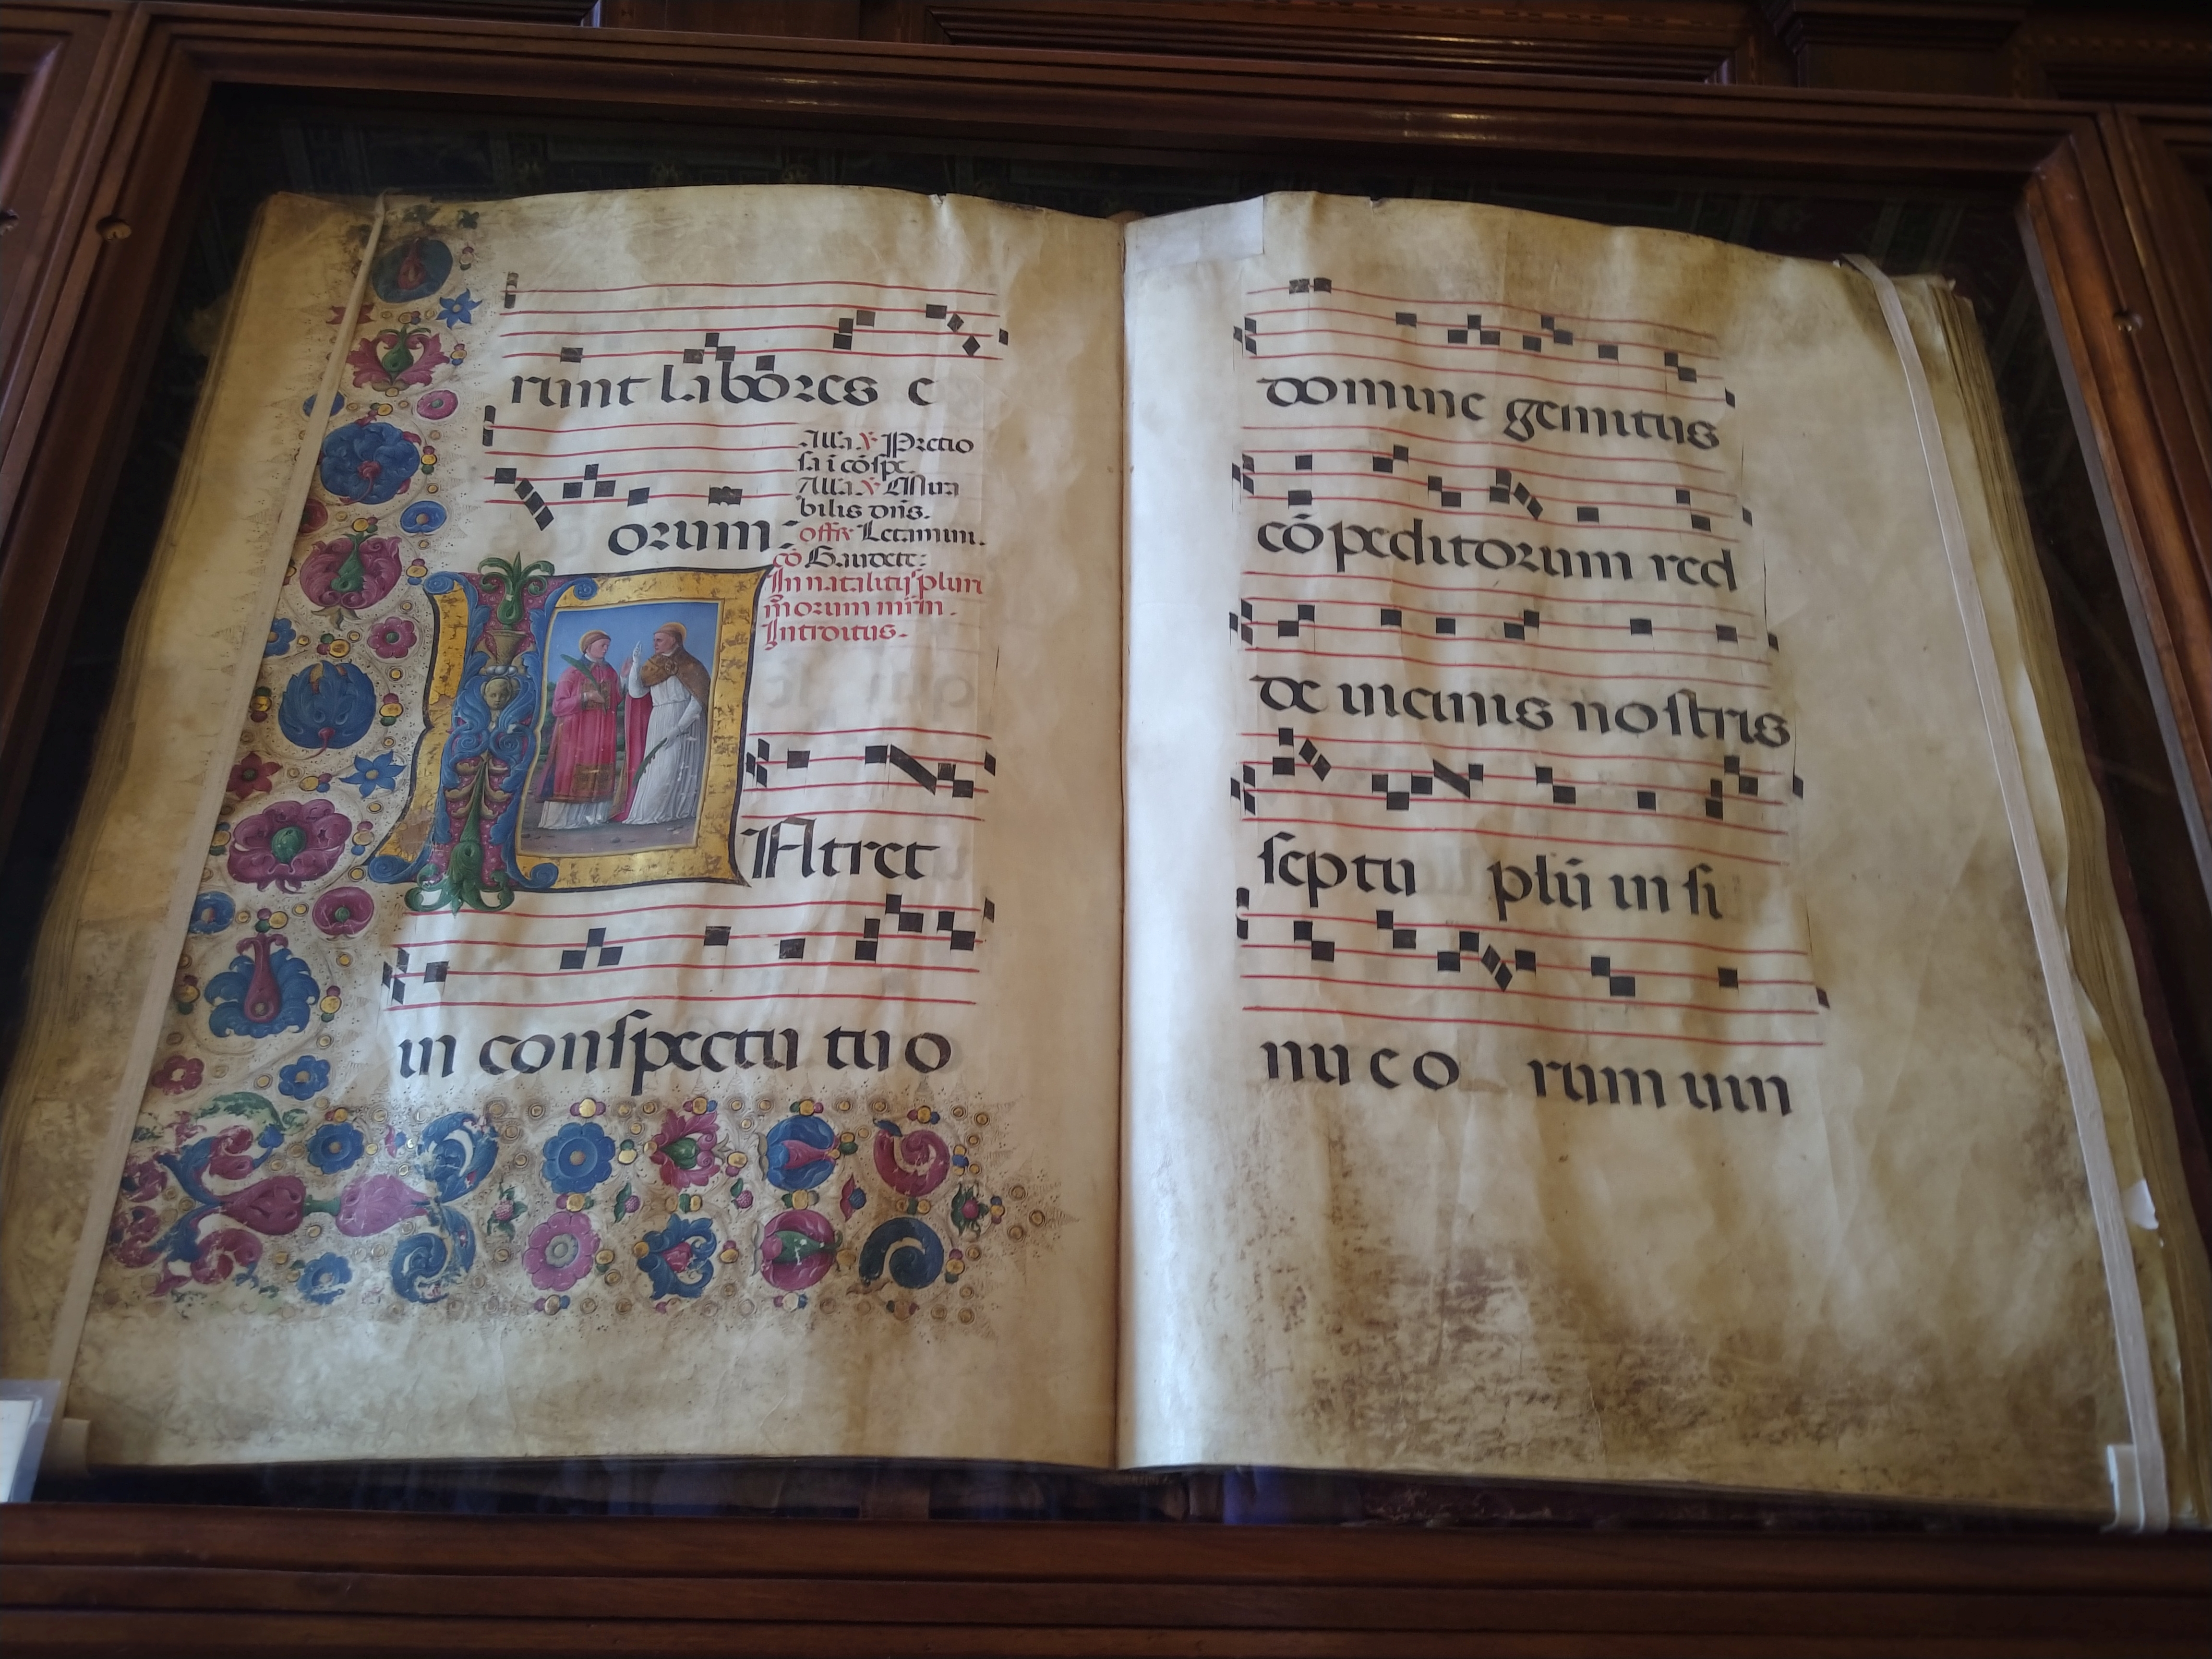 runt labores e
Alla. ꝟ Pretio
sa i cōspc.
Alla. ꝟ Mira
bilis dn̄s.
orum
offr̄ Letamini.
cō Gaudete:
In natalitijˢ pluri
moꝝum mr̄m.
Introitus.
INtret
in conspectu tuo
domine gemitus
cōpeditorum red
de uicinis nostris
septu plū in si
nu eorum uin